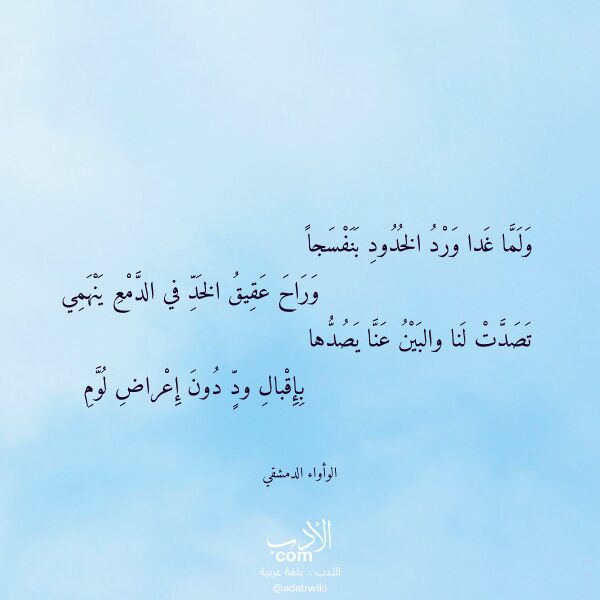 وَلَمَّا غَدا وَرْدُ الخُدُودِ بَنَفْسَجاً
وَرَاحَ عَقِيقُ الخَدِّ في الدَّمْعِ يَنْهَمِي
تَصَدَّتْ لَنا والبَيْنُ عَنَّا يَصُدُّها
بِإِقْبالِ ودٍّ دُونَ إِعْراضِ لُوَّمِ
الوأواء الدمشقي
الأدب
.com
الأدب .. بلغة عربية
@adabwiki